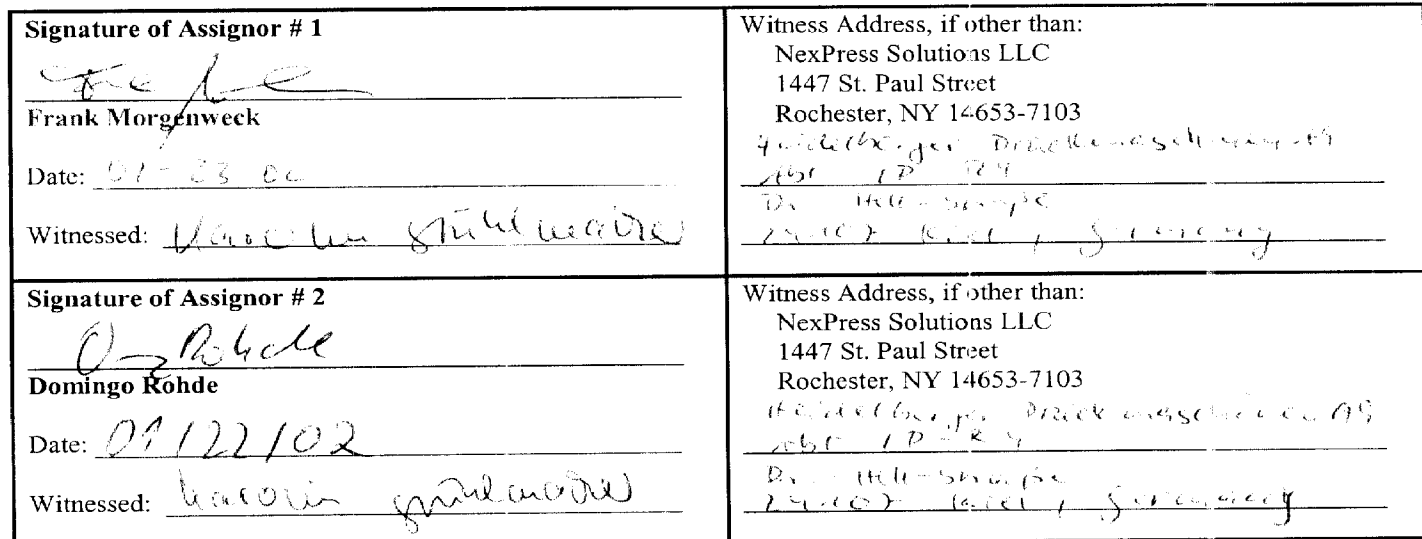 Signature of Assignor # 1
Frank Morgenweck
Date: 01-23 02
Witnessed:
Witness Address, if other than:
NexPress Solutions LLC
1447 St. Paul Street
Rochester, NY 14653-7103
Heidelberger Druckmaschinen AG
Abt
Dr. Hell-Strasse
24107 Kiel, Germany
Signature of Assignor # 2
Rohde
Domingo Rohde
Date: 01/22/02
Witnessed:
Witness Address, if other than:
NexPress Solutions LLC
1447 St. Paul Street
Rochester, NY 14653-7103
Heidelberger Druckmaschinen AG
Abt
Dr. Hell-Strasse
24107 Kiel, Germany